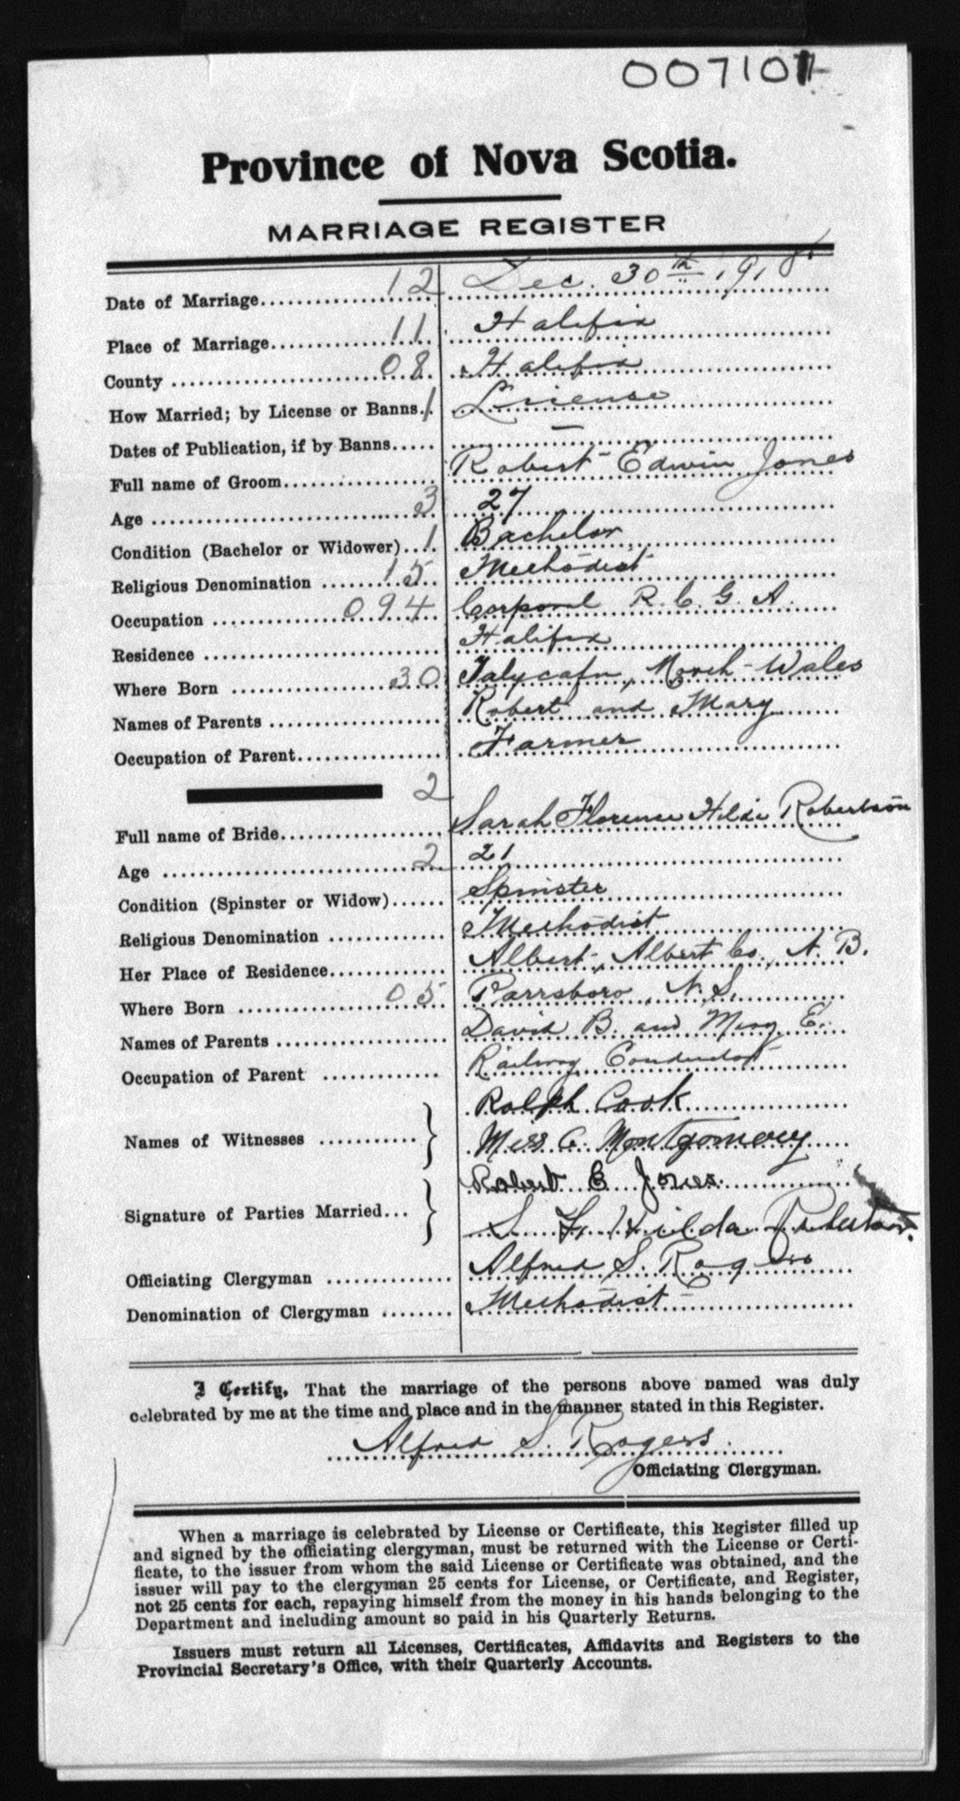 007101
Province of Nova Scotia.
MARRIAGE REGISTER
Date of Marriage 12 Dec. 30th 1918
Place of Marriage 11 Halifax
County 08 Halifax
How Married; by License or Banns 1 License
Dates of Publication, if by Banns —
Full name of Groom Robert Edwin Jones
Age 3 27
Condition (Bachelor or Widower) 1 Bachelor
Religious Denomination 15 Methodist
Occupation 094 Corporal R. C. G. A.
Residence Halifax
Where Born 30 Talycafn, North Wales
Names of Parents Robert and Mary
Occupation of Parent Farmer
2
Full name of Bride Sarah Florence Hilda Robertson
Age 2 21
Condition (Spinster or Widow) Spinster
Religious Denomination Methodist
Her Place of Residence Albert, Albert Co., N. B.
Where Born 05 Parrsboro, N. S.
Names of Parents David B. and Mary E.
Occupation of Parent Railway Conductor
Ralph Cook
Names of Witnesses Miss C. Montgomery
Robert E Jones.
Signature of Parties Married S. F. Hilda Robertson.
Officiating Clergyman Alfred S. Rogers
Denomination of Clergyman Methodist
I Certify, That the marriage of the persons above named was duly
celebrated by me at the time and place and in the manner stated in this Register.
Alfred S. Rogers.
Officiating Clergyman.
When a marriage is celebrated by License or Certificate, this Register filled up
and signed by the officiating clergyman, must be returned with the License or Certi-
ficate, to the issuer from whom the said License or Certificate was obtained, and the
issuer will pay to the clergyman 25 cents for License, or Certificate, and Register,
not 25 cents for each, repaying himself from the money in his hands belonging to the
Department and including amount so paid in his Quarterly Returns.
Issuers must return all Licenses, Certificates, Affidavits and Registers to the
Provincial Secretary's Office, with their Quarterly Accounts.